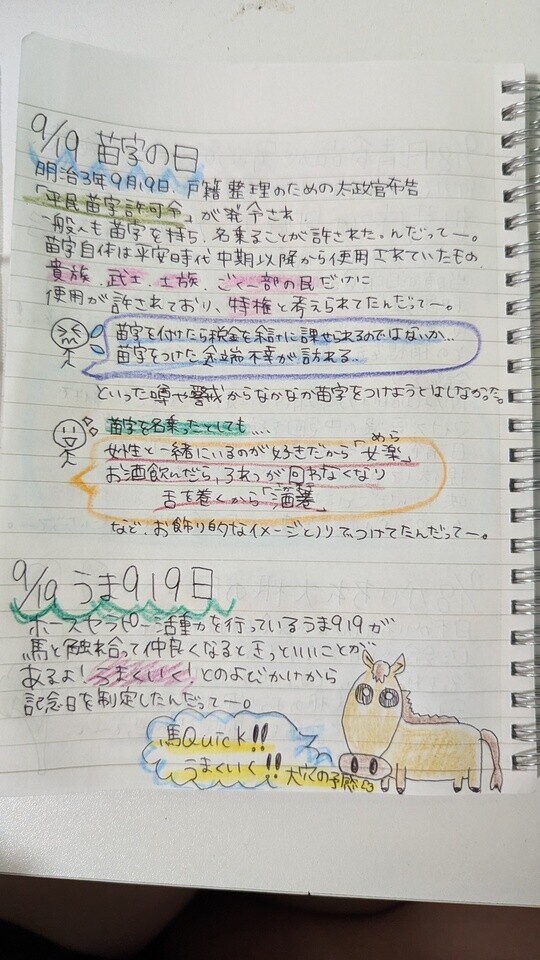 9/19 苗字の日
明治3年9月19日、戸籍整理のための太政官布告
「平民苗字許可令」が発令され
一般人も苗字を持ち、名乗ることが許されたんだってー。
苗字自体は平安時代中期以降から使用されていたもの、
貴族、武士、士族、ごく一部の民だけに
使用が許されており、特権と考えられてたんだってー。
苗字を付けたら税金を余計に課せられるのではないか…
苗字をつけた途端不幸が訪れる…
といった噂や警戒からなかなか苗字をつけようとはしなかった。
苗字を名乗ったとしても….
女性と一緒にいるのが好きだから「女楽」
めら
お酒飲んだら、ろれつが回わなくなり
舌を巻くから「酒巻」
など、お飾り的なイメージとノリでつけてたんだってー。
9/19 うま919日
ホースセラピー活動を行っているうま919が
馬と触れ合って仲良くなるときっといいことが
あるよ!うまくいく!とのよびかけから
記念日を制定したんだってー。
馬Quick!!
うまくいく!!
大穴の予感